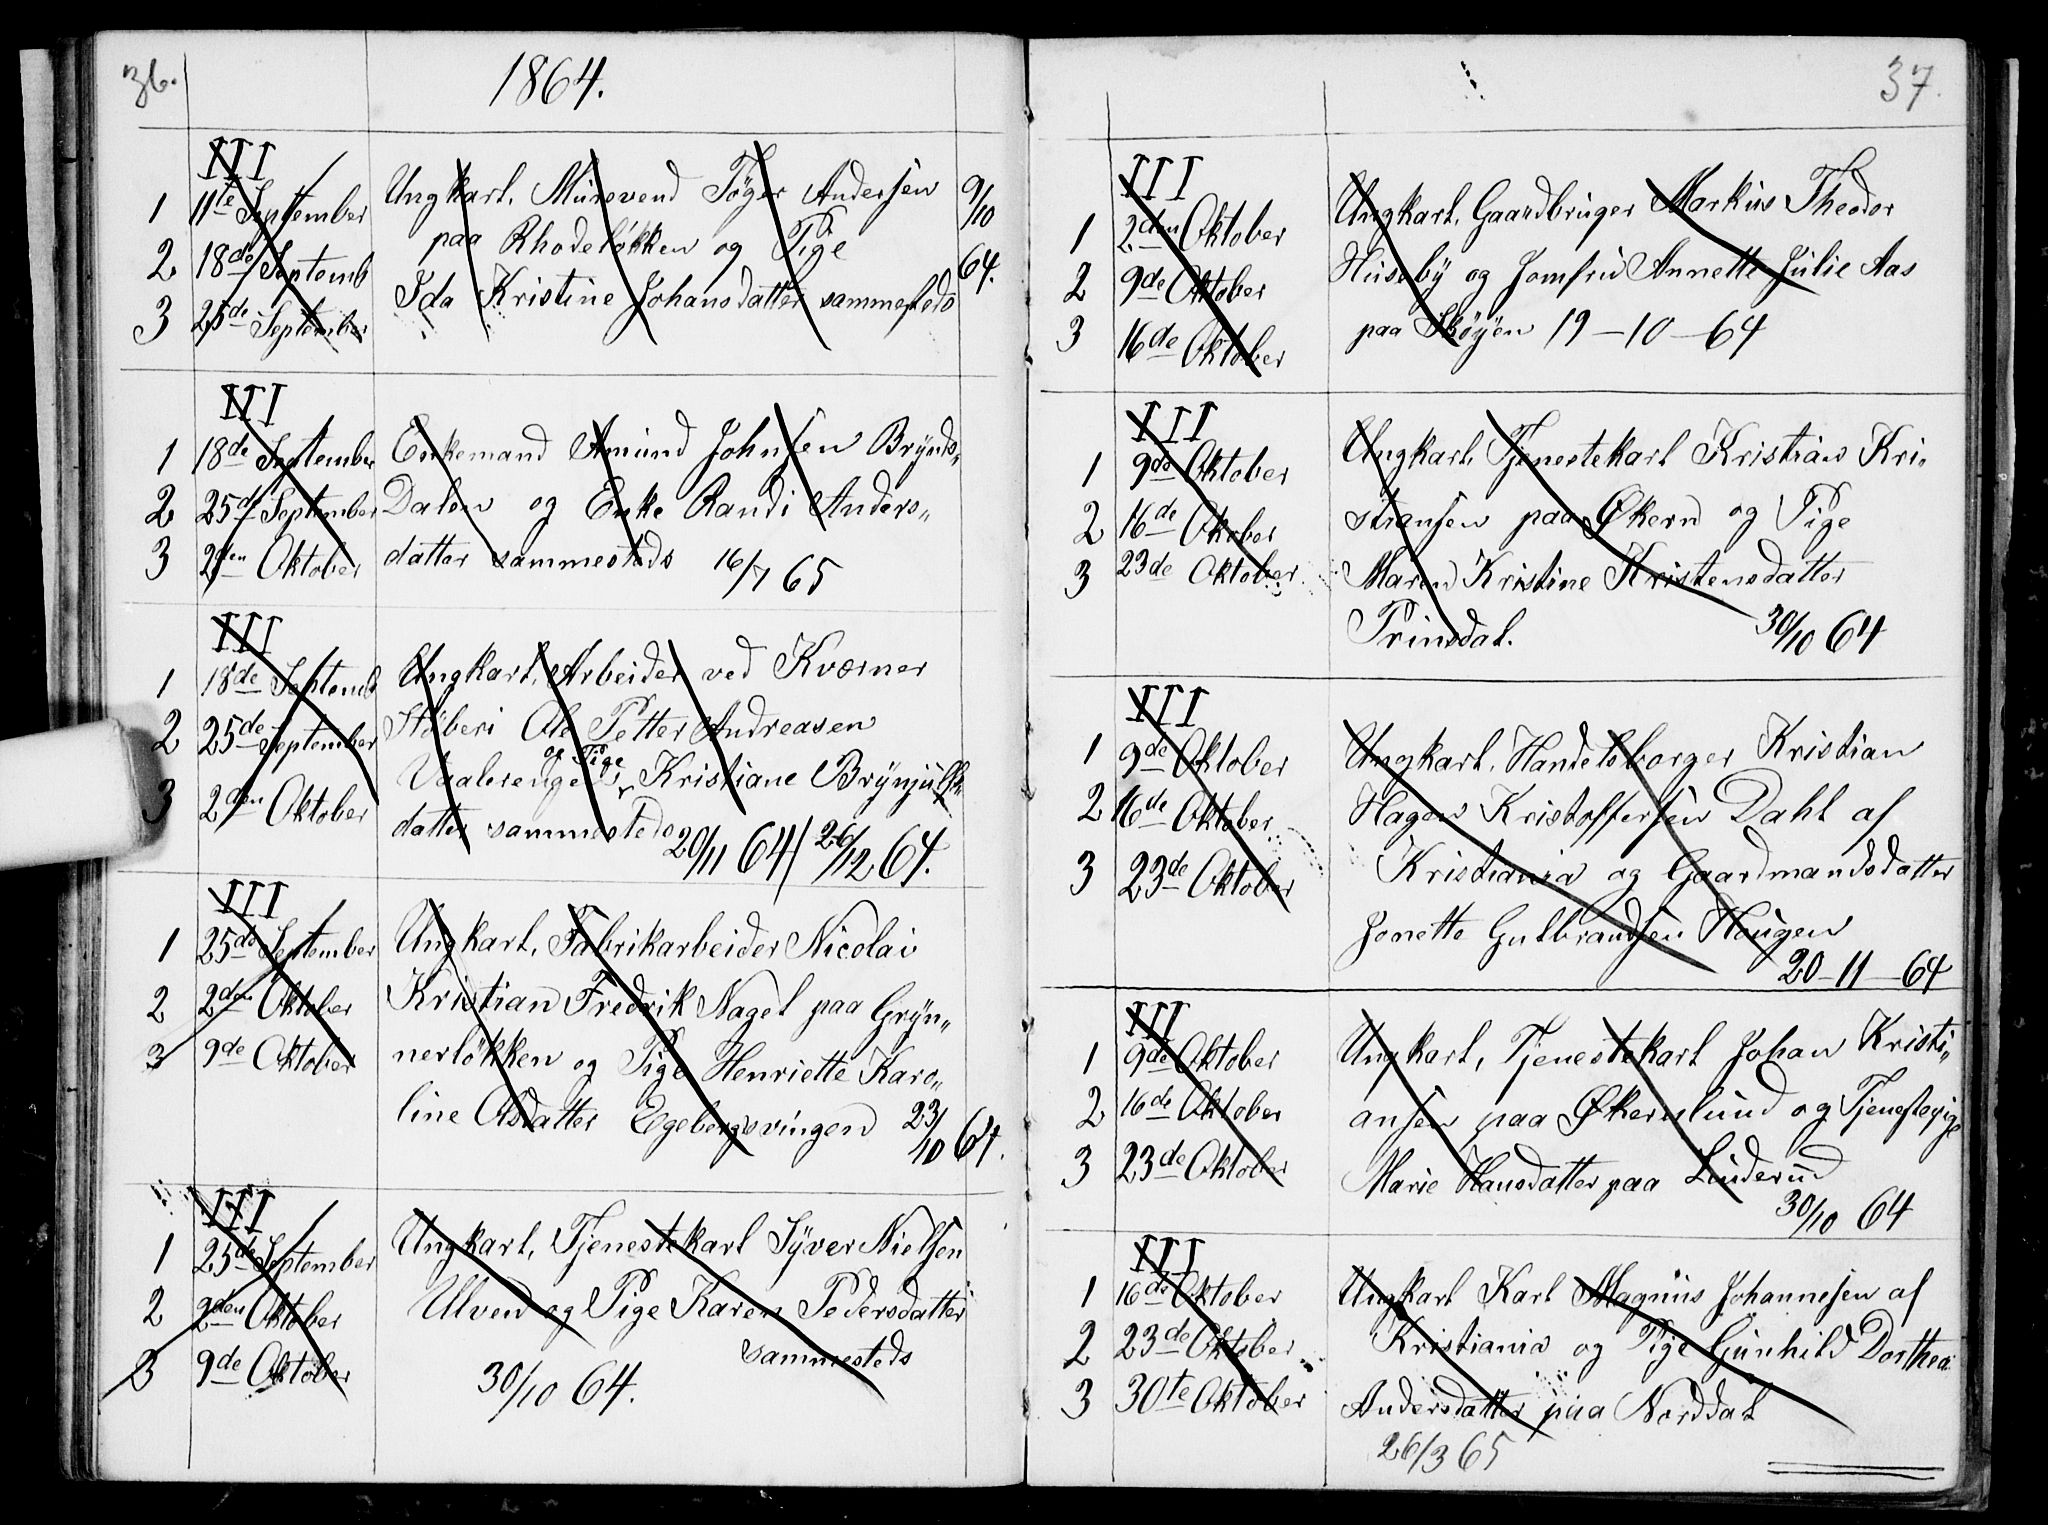 36.
1864.
III
1 11te September
2 18de Septemb
3 25de September
Ungkarl, Mursvend Töger Andersen
paa Rhodeløkken og Pige
Ida Kristine Johansdatter sammesteds
9/10
64.
III
1 18de September
2 25de September
3 2den Oktober
Enkemand Amund Johnsen Brynds„
Dalen og Enke Randi Anders„
datter sammesteds 16/7 65
III
1 18de Septemb
2 25de September
3 2den Oktober
Ungkarl, Arbeider ved Kværner
Støberi Ole Petter Andreasen
og Pige
Vaalerengen Kristiane Brynjulfs„
datter sammesteds
20/11 64 / 26/12 64.
III
1 25de September
2 2den Oktober
3 9de Oktober
Ungkarl, Fabrikarbeider Nicolai
Kristian Fredrik Nagel paa Gryn„
nerløkken og Pige Henriette Karo„
line Olsdatter Egebergsvingen 23/10 64.
III
1 25de September
2 2den Oktober
3 9de Oktober
Ungkarl, Tjenestekarl Syver Nielsen
Ulven og Pige Karen Pedersdatter
sammesteds
30/10 64.
37.
III
1 2den Oktober
2 9de Oktober
3 16de Oktober
Ungkarl, Gaardbruger Markus Theodor
Huseby og Jomfru Annette Julie Aas
paa Skøyen 19-10-64
III
1 9de Oktober
2 16de Oktober
3 23de Oktober
Ungkarl, Tjenestekarl Kristian Kri„
stiansen paa Økern og Pige
Maren Kristine Kristensdatter
Prinsdal. 30/10 64
III
1 9de Oktober
2 16de Oktober
3 23de Oktober
Ungkarl, Handelsborger Kristian
Hagen Kristoffersen Dahl af
Kristiania og Gaardmandsdatter
Jonette Gulbrandsen Hougen
20-11-64
III
1 9de Oktober
2 16de Oktober
3 23de Oktober
Ungkarl, Tjenestekarl Johan Kristi„
ansen paa Økernlund og Tjenestepige
Marie Hansdatter paa Linderud
30/10 64
III
1 16de Oktober
2 23de Oktober
3 30te Oktober
Ungkarl Karl Magnus Johannesen af
Kristiania og Pige Gunhild Dorthea
Andersdatter paa Norddal
26/3 65